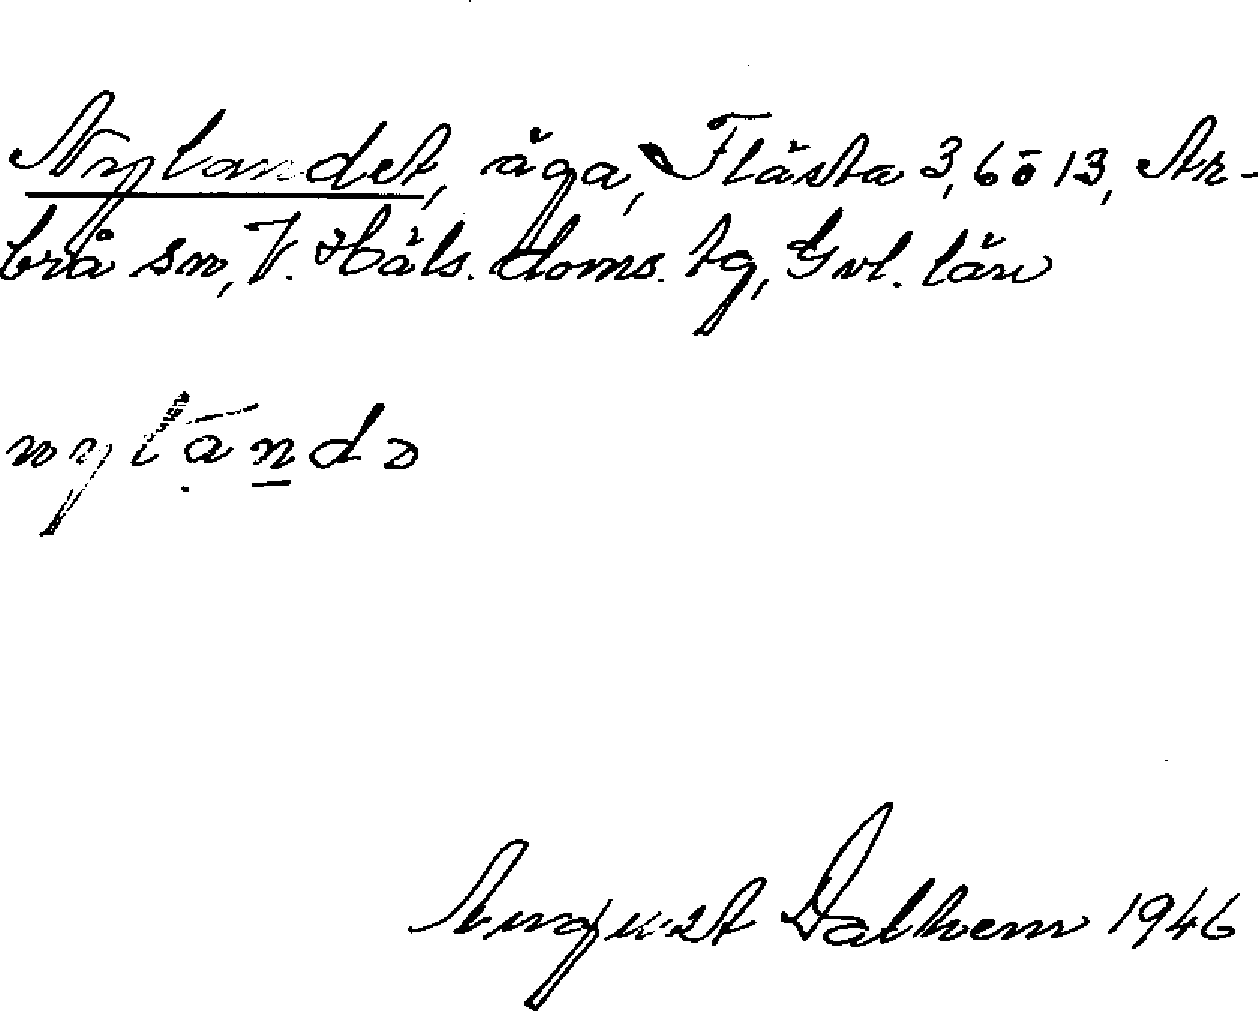 Nylandet, äga, Flästa 3, 6 o 13, Ar-
brå sn, V. Häls. doms. tg, Gvl. län
nylandə
August Dalhem 1946